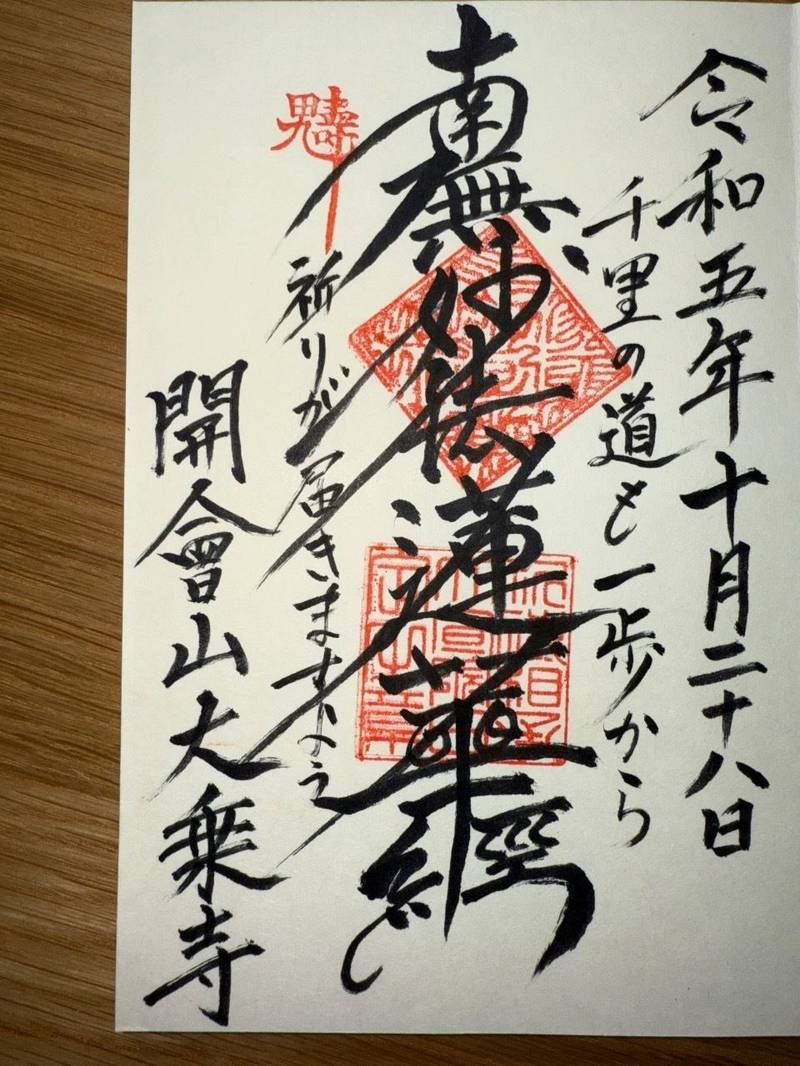 令和五年十月二十八日
千里の道も一歩から
南無妙法蓮華經
祈りが届きますように
開會山大乗寺